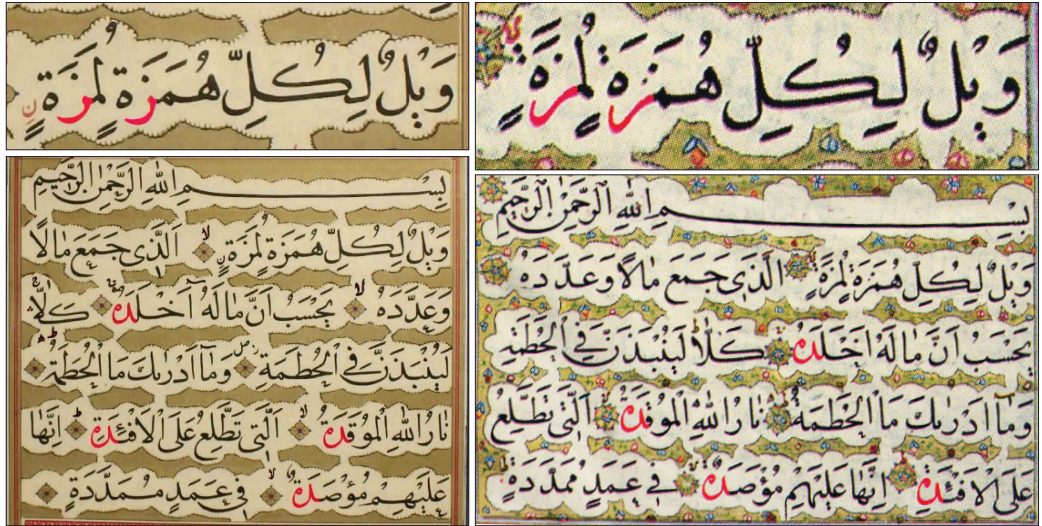 وَيْلٌ لِكُلِّ هُمَزَةٍ لُمَزَةٍ
وَيْلٌ لِكُلِّ هُمَزَةٍ لُمَزَةٍ
بِسْمِ اللّٰهِ الرَّحْمٰنِ الرَّحِيمِ
وَيْلٌ لِكُلِّ هُمَزَةٍ لُمَزَةٍ اَلَّذِى جَمَعَ مَالًا
وَعَدَّدَهُ يَحْسَبُ اَنَّ مَالَهُٓ اَخْلَدَهُ كَلَّا
لَيُنْبَذَنَّ فِى الْحُطَمَةِ وَمَٓا اَدْرٰيكَ مَا الْحُطَمَةُ
نَارُ اللّٰهِ الْمُوقَدَةُ اَلَّتِى تَطَّلِعُ عَلَى الْاَفْـِٔدَةِ اِنَّهَا
عَلَيْهِمْ مُؤْصَدَةٌ فِى عَمَدٍ مُمَدَّدَةٍ
بِسْمِ اللّٰهِ الرَّحْمٰنِ الرَّحِيمِ
وَيْلٌ لِكُلِّ هُمَزَةٍ لُمَزَةٍ اَلَّذِى جَمَعَ مَالًا وَعَدَّدَهُ
يَحْسَبُ اَنَّ مَالَهُ اَخْلَدَهُ كَلَّا لَيُنْبَذَنَّ فِى الْحُطَمَةِ
وَمَٓا اَدْرٰيكَ مَا الْحُطَمَةُ نَارُ اللّٰهِ الْمُوقَدَةُ اَلَّتِى تَطَّلِعُ
عَلَى الْاَفْـِٔدَةِ اِنَّهَا عَلَيْهِمْ مُؤْصَدَةٌ فِى عَمَدٍ مُمَدَّدَةٍ